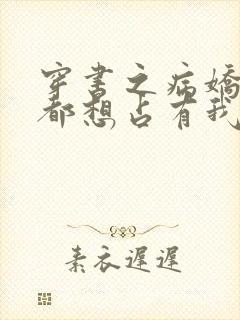 穿书之病娇
都想占有我
素衣遲遲